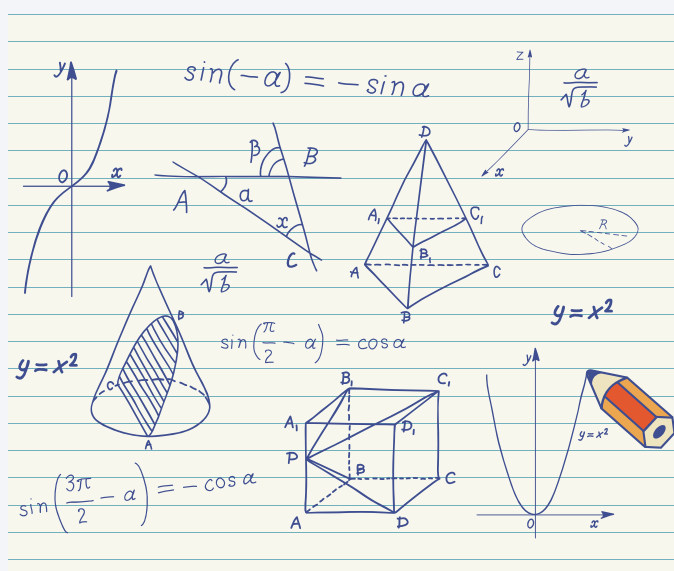 y
x
0
sin(-α) = -sin α
z
y
x
0
a/√b
β
B
A
α
x
C
D
A₁
C₁
B₁
A
C
B
R
a/√b
y=x²
B
C
A
sin(π/2 - α) = cos α
y=x²
B₁
C₁
A₁
D₁
P
B
C
A
D
y
y=x²
0
x
sin(3π/2 - α) = -cos α